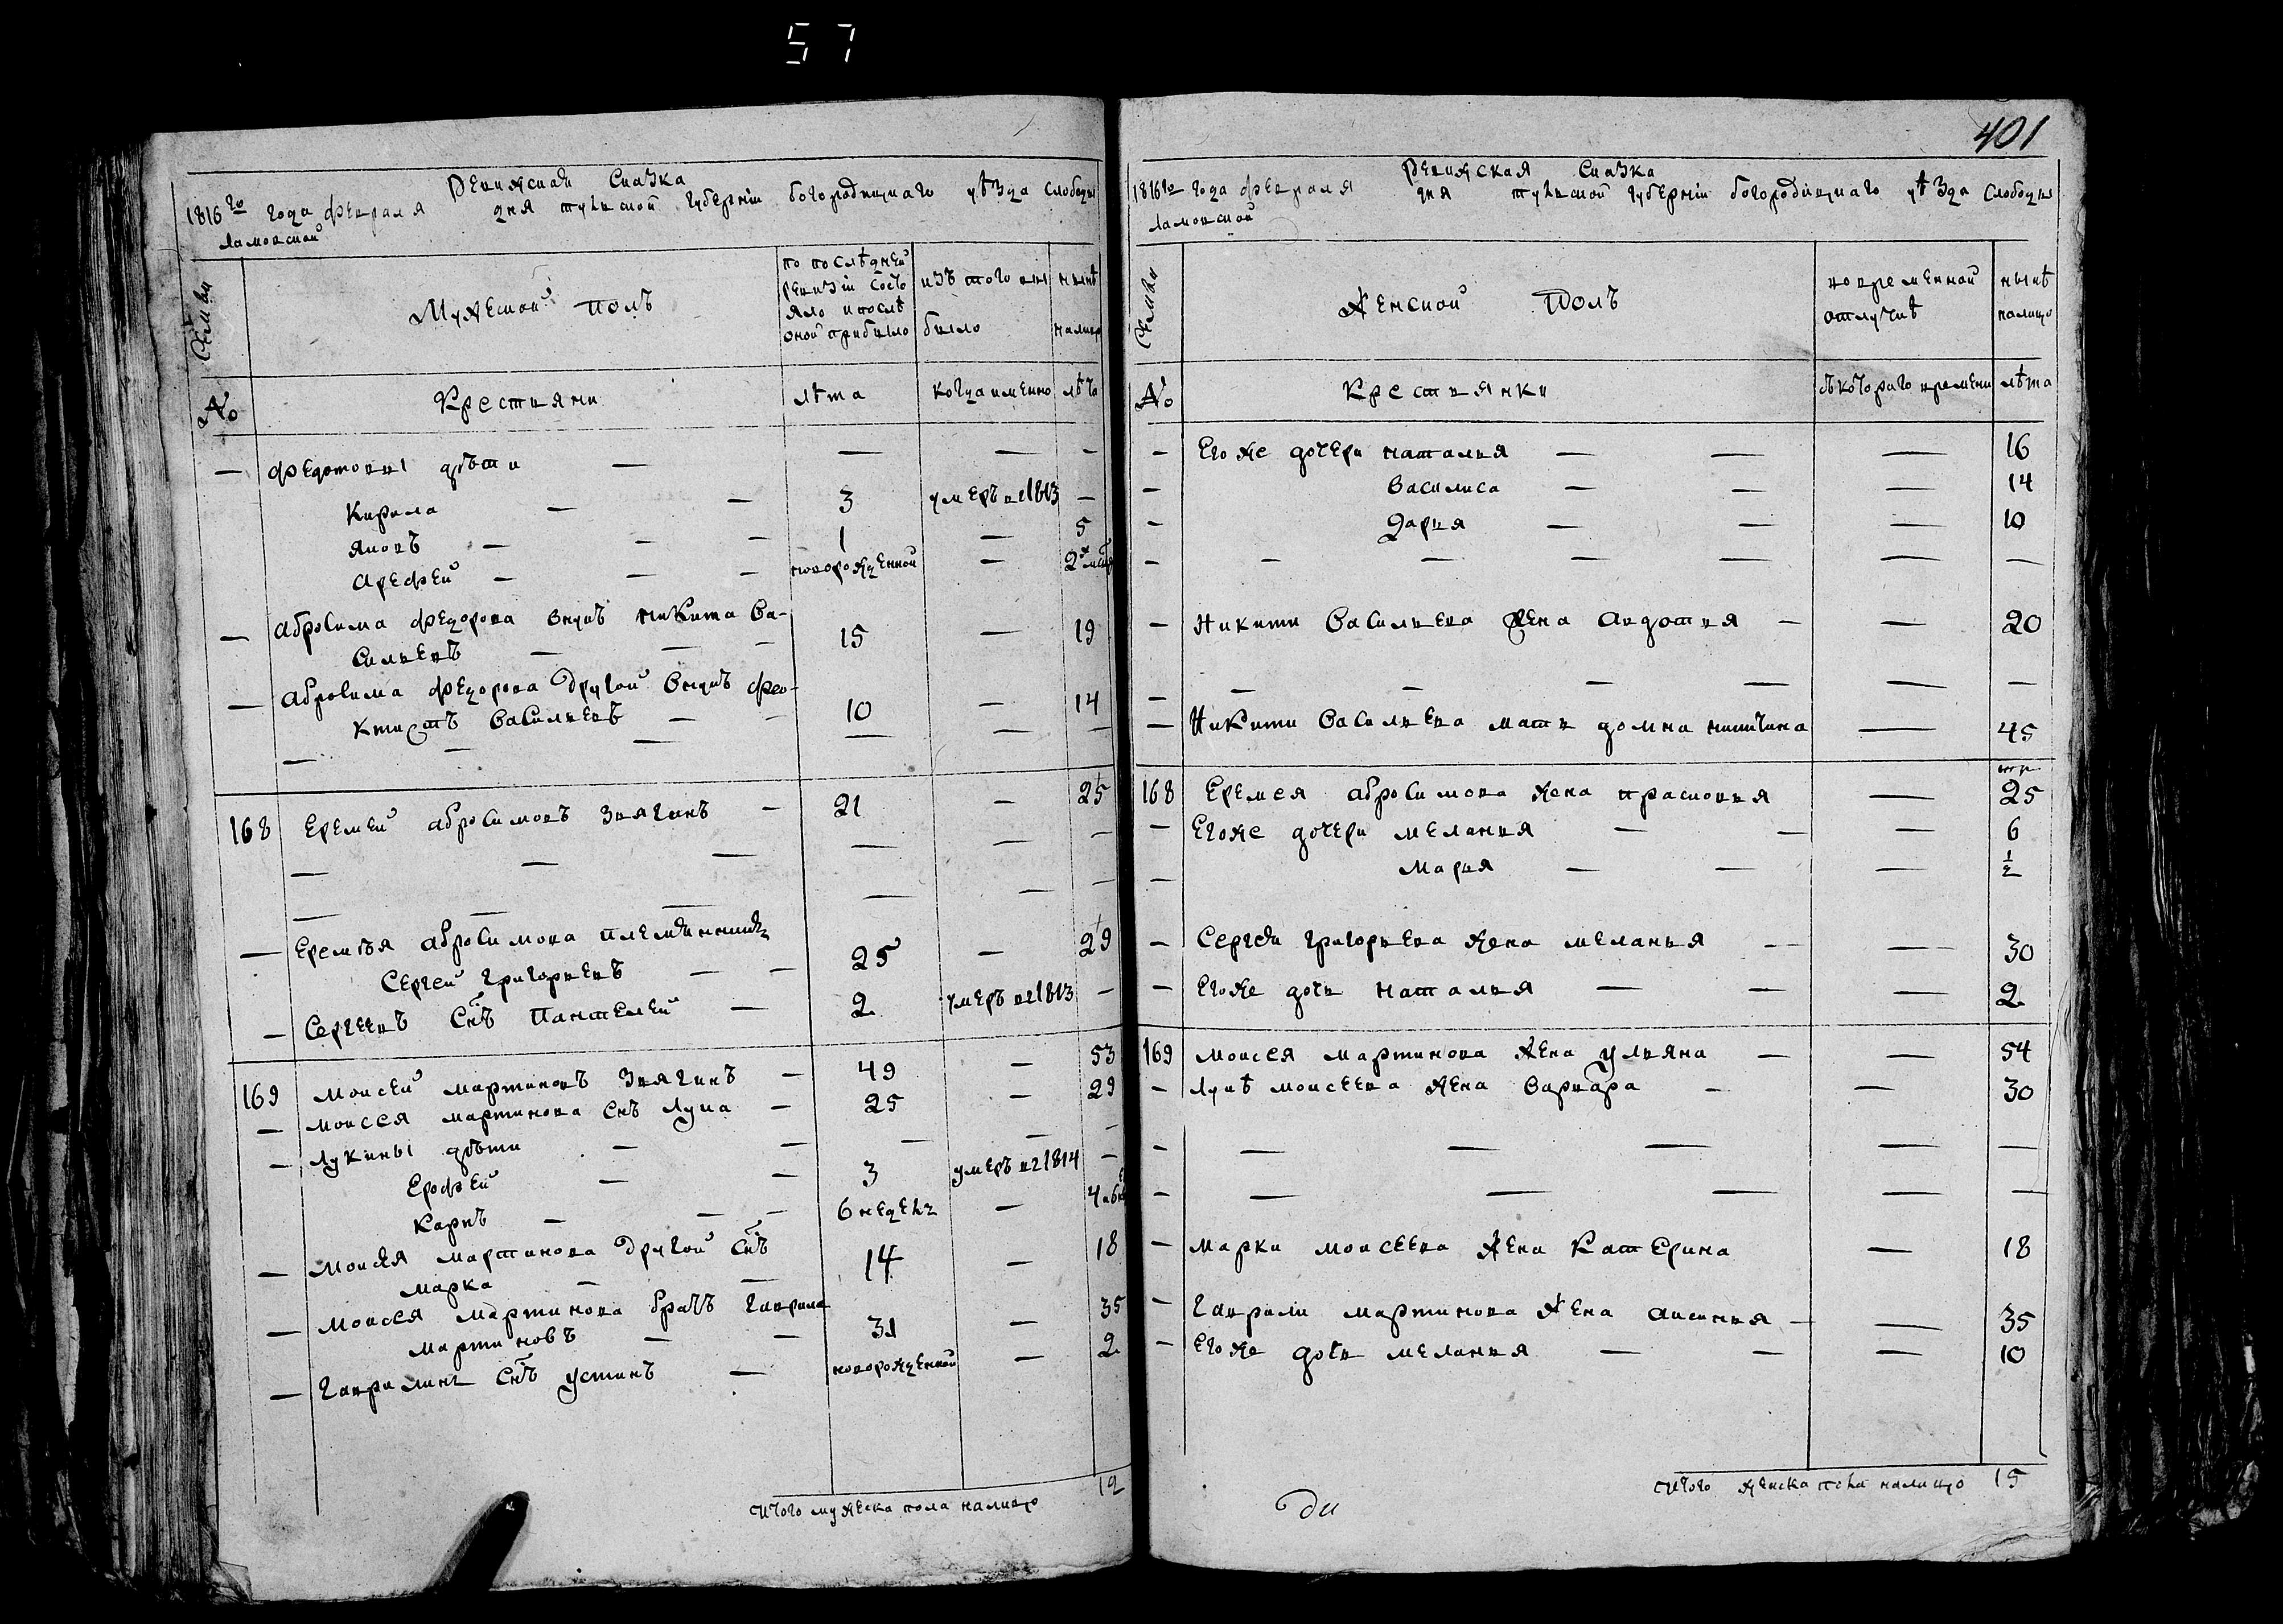 57
Ревижская Сказка
1816го года февраля дня тульской губернiи богородицкаго уѣзда Слободы
ламовской
Сѣмьи
Мужеской полъ
по послѣдней
ревизiи состо
яло и послѣ
оной прибыло
изъ того вы
было
нынѣ
налицо
№
Крестьяни
лѣта
когда именно
лѣта
— федотовы дѣти — — — —
Кирила — — 3 умеръ в 1813 —
яковъ — — — 1 — 5
Арефей — — — новорожденной — 2
— абросима федорова внукъ никита Ва-
сильевъ — — — 15 — 19
— абросима федорова другой внукъ фео-
ктистъ Васильевъ — — 10 — 14
— — — — — —
168 Еремей абросимовъ Звягинъ — 21 — 25
— — — — — —
— — — — — —
— Еремѣя абросимова племянникъ
Сергей григорьевъ — — 25 — 29
— Сергеевъ снъ Пантелей — 2 умеръ в 1813 —
169 моисей мартиновъ Звягинъ — 49 — 53
— моисея мартинова снъ лука — 25 — 29
— лукины дѣти — — — — —
Ерофей — — 3 умеръ в 1814 —
карпъ — — — 6 недель — 4
— моисея мартинова другой снъ
марка — — 14 — 18
— моисея мартинова братъ гаврила
мартиновъ — — 31 — 35
— гаврилинъ снъ устинъ — новорожденной — 2
Итого мужеска пола налицо 12
401
Ревижская Сказка
1816го года февраля дня тульской губернiи богородицкаго уѣзда Слободы
ламовской
Сѣмьи
Женской Полъ
во временной
отлучкѣ
нынѣ
налицо
№
Крестьянки
съ котораго времени
лѣта
— Его же дочери наталья — — — 16
— Василиса — — — 14
— Дарья — — — 10
— — — — — — —
— Никити Васильева жена авдотья — — 20
— — — — — — —
— Никити Васильева мать домна никитина — 45
168 Еремея абросимова жена прасковья — 25
— Его же дочери меланья — — — 6
— Марья — — — 1/2
— Сергея григорьева жена меланья — — — 30
— Его же дочь наталья — — — 2
169 моисея мартинова жена ульяна — — 54
— лукѣ моисеева жена варвара — — 30
— — — — — —
— — — — — —
— марки моисеева жена Катерина — 18
— гаврили мартинова жена аксинья — — 35
— Его же дочь меланья — — — 10
Итого женска пола налицо 15